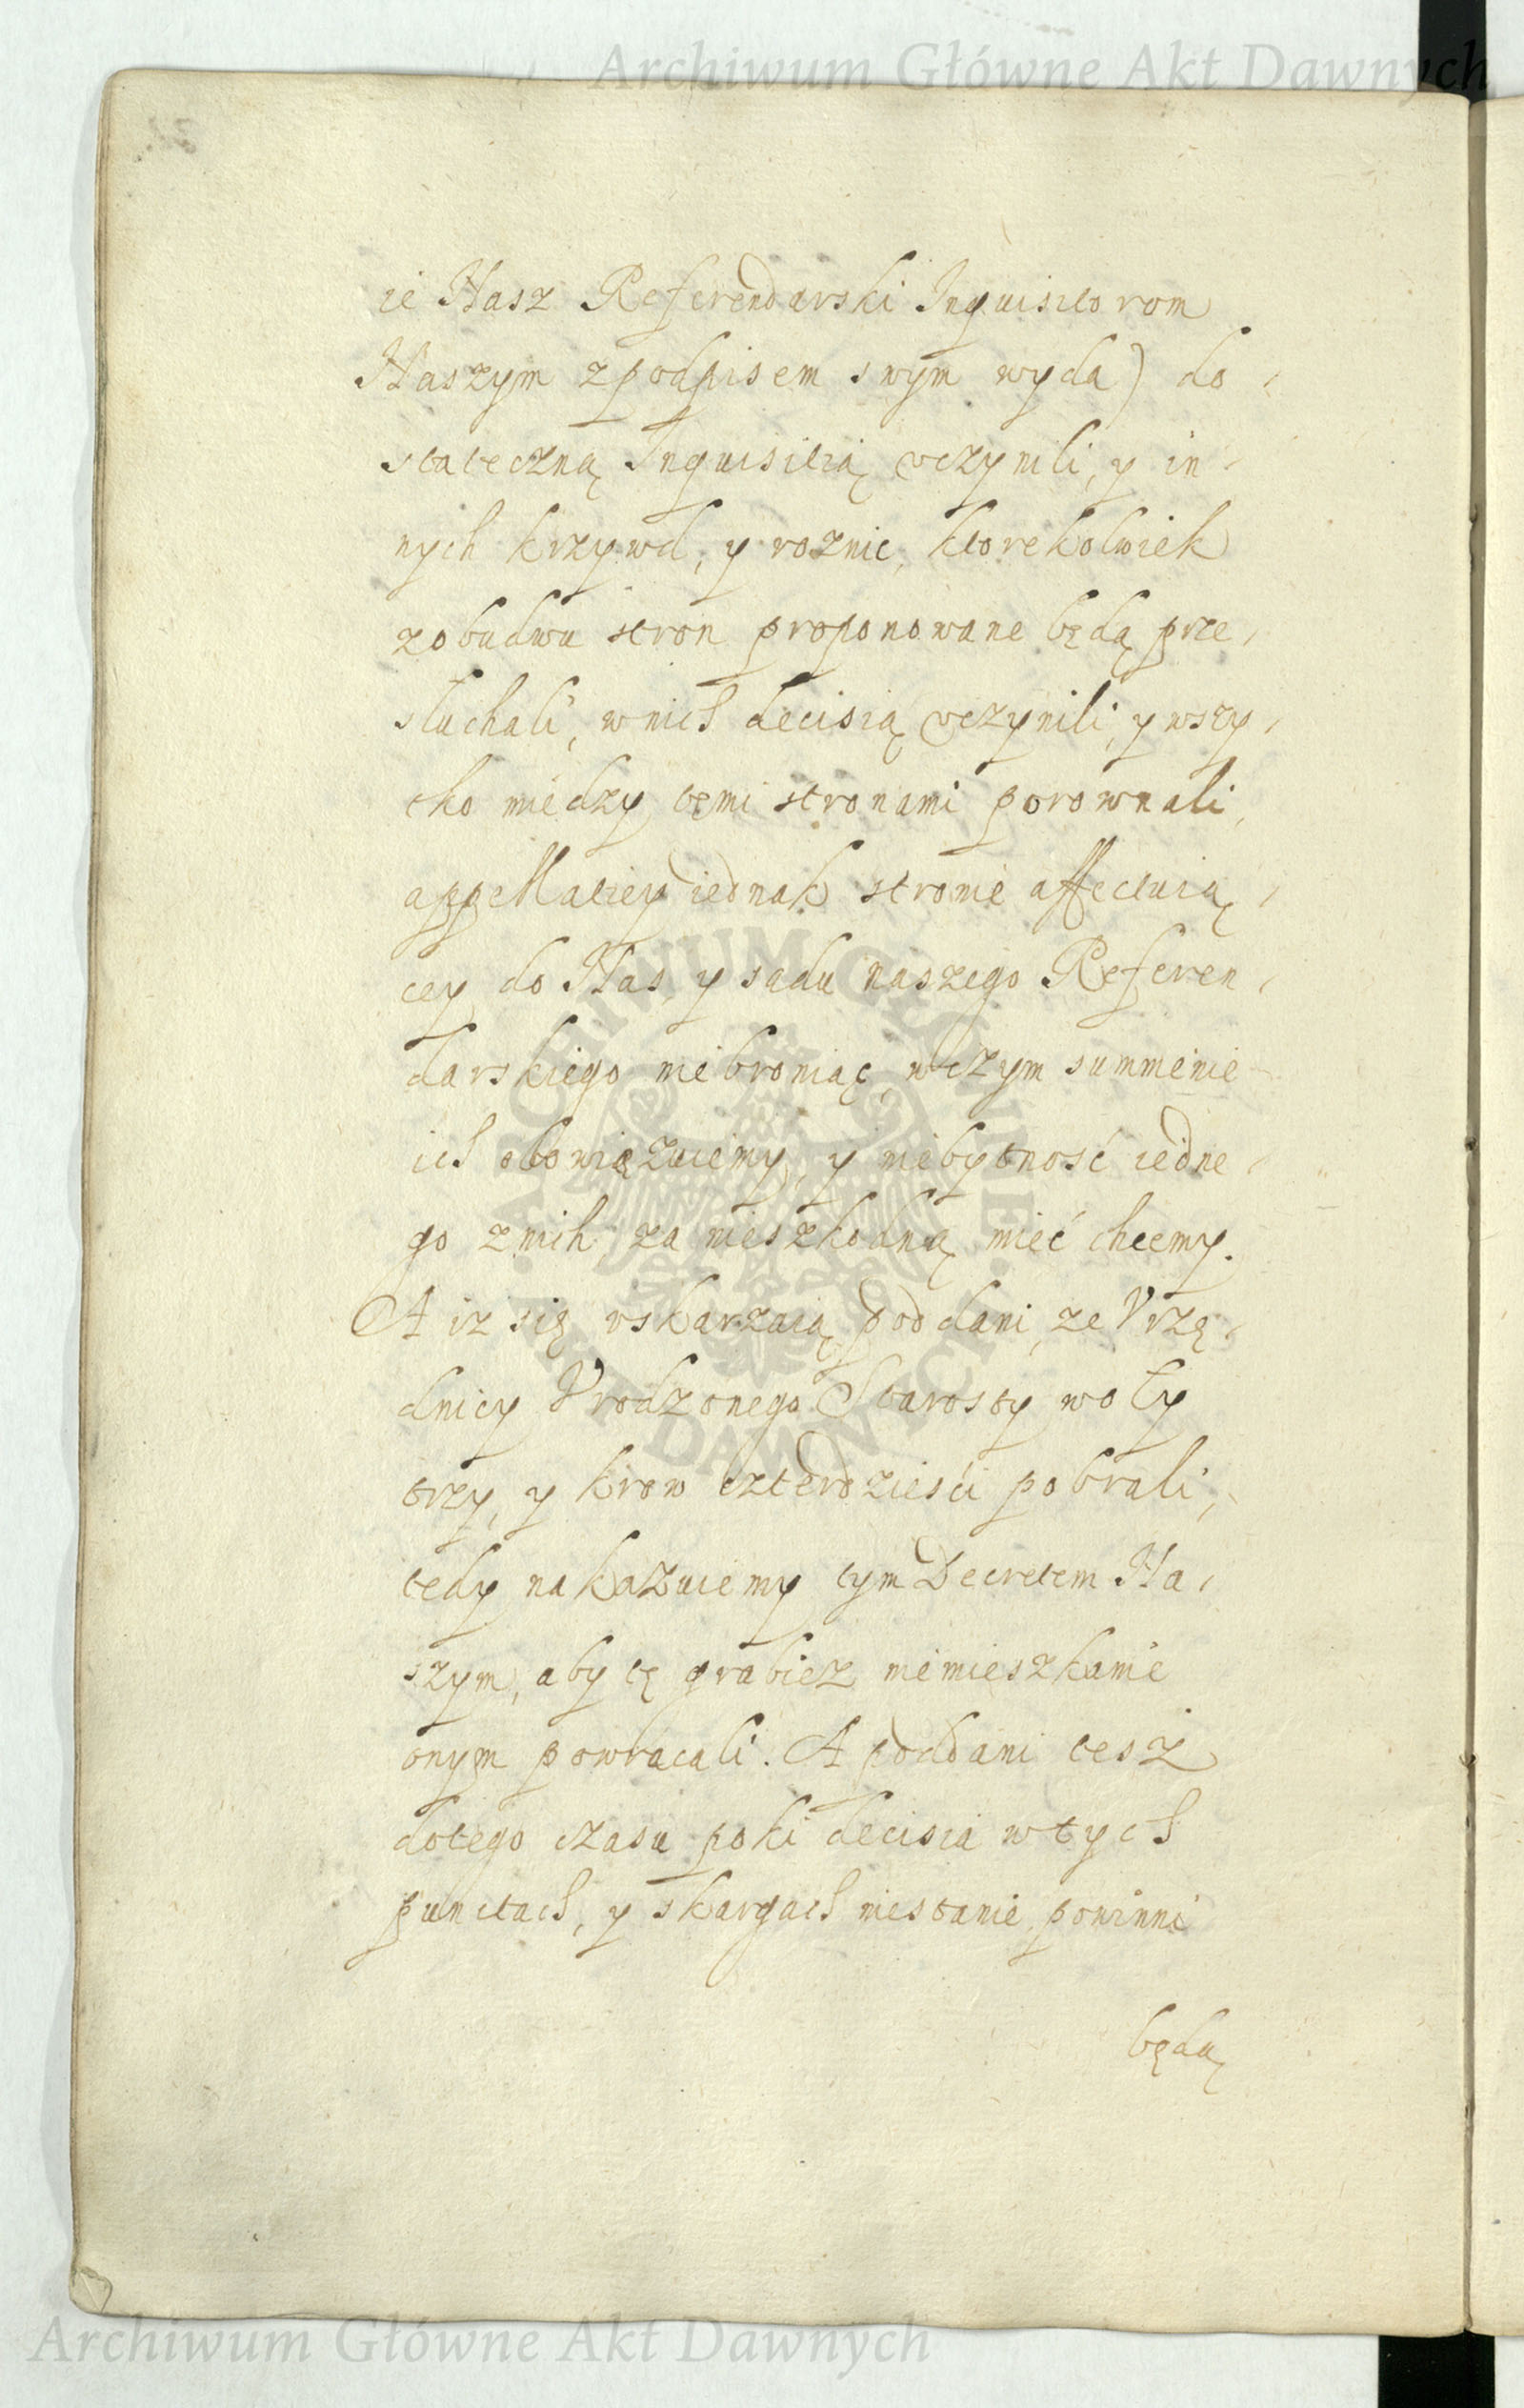 Archiwum Główne Akt Dawnych
ie Nasz Referendarski Inquisitorom
Naszym zpodpisem swym wyda) do-
stateczną Inquisitią vczynili, y in-
nych krzywd, y roznic, ktorekolwiek
zobudwu stron proponowane będą prze-
słuchali, wnich decisią vczynili, y wszy-
tko miedzy temi stronami porownali,
appellatiey iednak stronie affectuią-
cey do Nas, y sadu naszego Referen-
darskiego niebroniąc, wczym summienie
ich obowięzuiemy, y niebytność iedne-
go znich za nieszkodną mieć chcemy.
A iz się vskarzaią poddani, ze Vrzę-
dnicy Vrodzonego Starosty woły
trzy, y krow czterdzieści pobrali,
tedy nakazuiemy tym Decretem Na-
szym, aby tę grabiez niemieszkanie
onym powracali. A poddani tesz
dotego czasu poki decisia wtych
punctach, y skargach niestanie, powinni
będą
ARCHIWUM GŁÓWNE
AKT DAWNYCH
Archiwum Główne Akt Dawnych